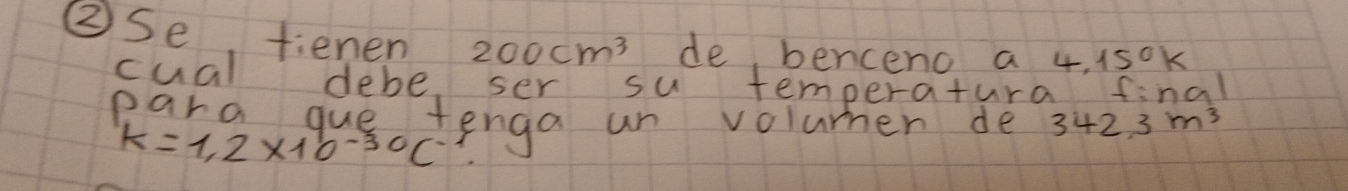 ② Se tienen 200cm³ de benceno a 4,15°K
cual debe ser su temperatura final
para que tenga un volumen de 342,3 m³
K=1,2x10⁻³°C⁻¹.